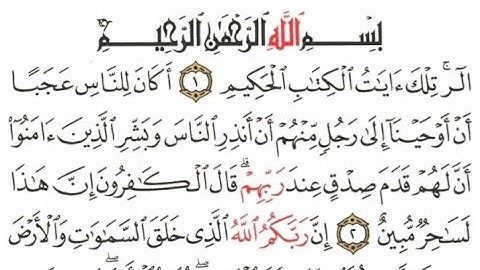 بِسْمِ اللَّهِ الرَّحْمَٰنِ الرَّحِيمِ
الٓر ۚ تِلْكَ ءَايَٰتُ الْكِتَٰبِ الْحَكِيمِ ١ أَكَانَ لِلنَّاسِ عَجَبًا
أَنْ أَوْحَيْنَآ إِلَىٰ رَجُلٍ مِّنْهُمْ أَنْ أَنذِرِ النَّاسَ وَبَشِّرِ الَّذِينَ ءَامَنُوٓا۟
أَنَّ لَهُمْ قَدَمَ صِدْقٍ عِندَ رَبِّهِمْ ۗ قَالَ الْكَٰفِرُونَ إِنَّ هَٰذَا
لَسَٰحِرٌ مُّبِينٌ ٢ إِنَّ رَبَّكُمُ اللَّهُ الَّذِى خَلَقَ السَّمَٰوَٰتِ وَالْأَرْضَ